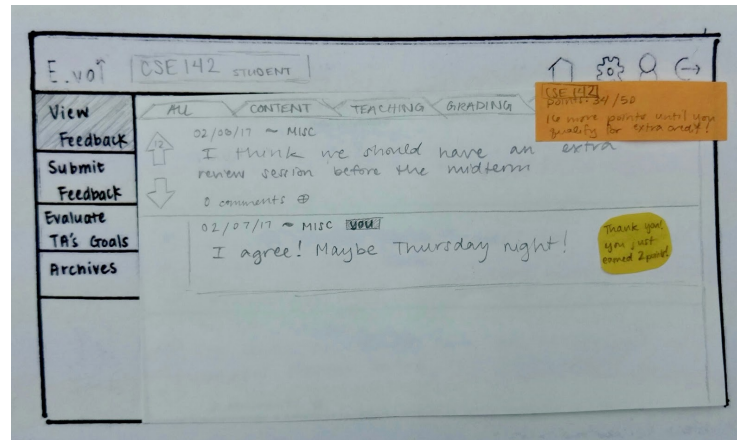 E.vot CSE 142 STUDENT
CSE 142
points: 34/50
16 more points until you
qualify for extra credit!
View
Feedback
Submit
Feedback
Evaluate
TA's Goals
Archives
ALL CONTENT TEACHING GRADING
02/06/17 ~ MISC
12
I think we should have an extra
review session before the midterm
0 comments ⊕
02/07/17 ~ MISC you
I agree! Maybe Thursday night!
Thank you!
you just
earned 2 points!